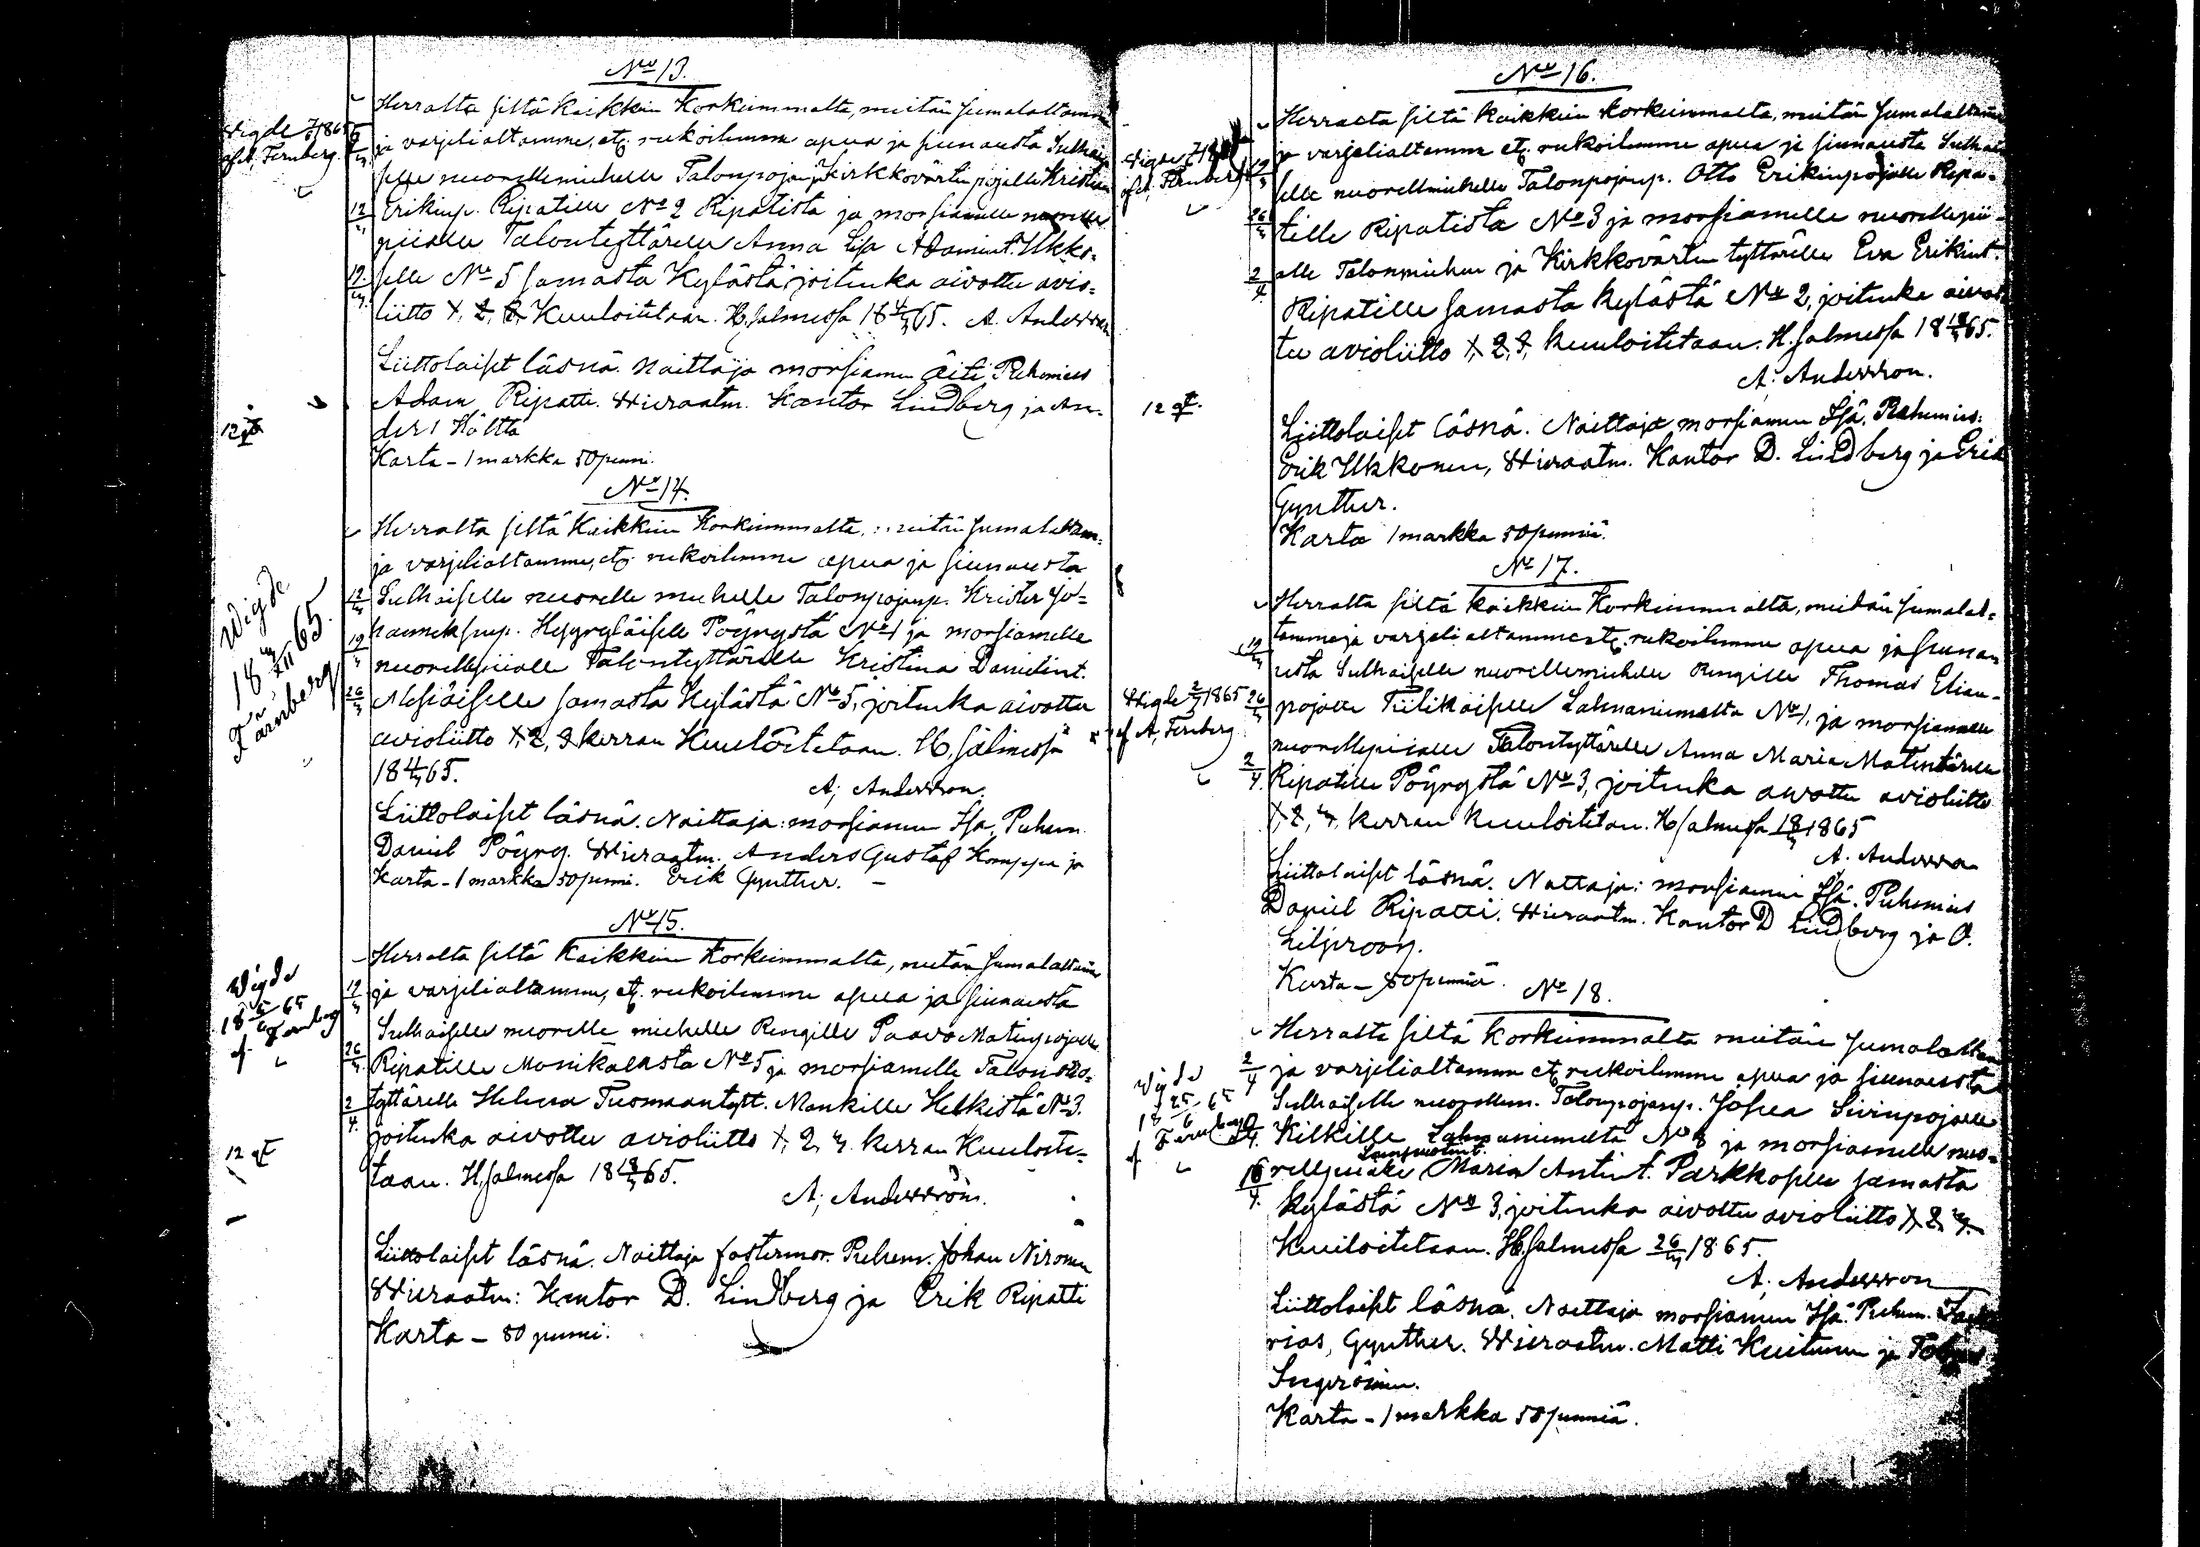 No 13.
Herralta siltä kaikkein korkeimmalta, meitän Jumalaltamme
ja varjelialtamme, etc. rukoilemme apua ja siunausta Sulhai-
selle nuorellemiehelle Talonpojan ja Kirkkovärtin pojalle Krister
Erikinp. Ripatille No 2 Ripatista ja morsiamelle nuorelle
piialle Talontyttärelle Anna Lisa Adamint. Ukko-
selle No 5 samasta Kylästä, joitenka aivottu avio-
liitto 1, 2, 3, Kuuloitetaan. H. Salmessa 18 4/3 65. A. Andersson
Liittolaiset läsnä. Naittaja morsiamen äiti Puhemies
Adam Ripatti. Wieraatm. Kantor Lindberg ja An-
ders Hältta
Karta - 1 markka 50 penni.
Vigde 7/6 1865
af A, Fernberg.
5/3
12/3
19/3
12
No 14.
Herralta siltä Kaikkein Korkeimmalta, meitän Jumalaltam-
ja varjelialtamme, etc. rukoilemme apua ja siunausta
Sulhaiselle nuorelle miehelle Talonpojanp. Krister Jo-
hanneksenp. Hyyryläiselle Pöyrystä No 1 ja morsiamelle
nuorellepiialle Talontyttärelle Kristina Danielint.
samasta Kylästä No 5, joitenka aivottu
avioliitto 1, 2, 3 kerran Kuuloitetaan. H. Salmessa
18 4/3 65.
A; Andersson.
Liittolaiset läsnä. Naittaja: morsiamen Isä, Puhem.
Daniel Pöyry. Wieraatm. Anders Gustaf Komppa ja
Karta - 1 markka 50 penni. Erik Gynther. -
Wigde
18 65.
Färnberg
12/3
19/3
26/3
No 15.
Herralta siltä Kaikkein Korkeimmalta, meitän Jumalaltamme
ja varjelialtamme, etc. rukoilemme apua ja siunausta
Sulhaiselle nuorelle miehelle Rengille Paavo Matinpojalle
Ripatille Monikalasta No 5 ja morsiamelle Talon
tyttärelle Helena Tuomaantytt. Mankille Helkistä No 3.
joitenka aivottu avioliitto 1, 2, 3. kerran Kuuloite-
taan. H, Salmessa 18 18/3 65.
A; Andersson.
Liittolaiset läsnä. Naittaja fostermor. Puhem. Johan Nironen
Wieraatm: Kantor D. Lindberg ja Erik Ripatti
Karta - 80 penni.
Wigde
19/3
26/3
2/4
12
No 16.
Herralta siltä kaikkein korkeimmalta, meitän Jumalaltamme
ja varjelialtamme etc. rukoilemme apua ja siunausta Sulhai
selle nuorellemiehelle Talonpojanp. Otto Erikinpojalle Ripa-
tille Ripatista No 3 ja morsiamelle nuorellepii-
alle Talonmiehen ja Kirkkovärtin tyttärelle Eva Erikint.
Ripatille samasta kylästä No 2, joitenka aivot
tu avioliitto 1, 2, 3, kuuloitetaan. H. Salmessa 18 18/3 65.
A: Andersson.
Liittolaiset läsnä. Naittaja morsiamen Isä, Puhemies:
Erik Ukkonen, Wieraatm. Kantor D. Lindberg ja Erik
Gynther.
Karta 1 markka 50 penniä.
af A, Fernberg
19/3
26/3
2/4
12
No 17.
Herralta siltä kaikkein Korkeimmalta, meidän Jumalal-
tamme ja varjelialtamme etc. rukoilemme apua ja siunau
usta Sulhaiselle nuorellemiehelle Rengille Thomas Elian-
pojalle Tiilikaiselle Lahnaniemestä No 1, ja morsiamelle
nuorellepiialle Talontyttärelle Anna Maria Matintärelle
Ripatille Pöyrystä No 3, joitenka aivottu avioliitto
1, 2, 3, kerran kuuloitetaan. H. Salmessa 18/3 1865
A. Andersson
Liittolaiset läsnä. Naittaja: morsiamen Isä. Puhemies
Daniel Ripatti. Wieraatm. Kantor D Lindberg ja O.
Liljeroos.
Karta - 80 penniä.
Wigde 2/7 1865
af A, Fernberg
19/3
26/3
2/4
No 18.
Herralta siltä Korkeimmalta meitän Jumalaltam
ja varjelialtamme etc rukoilemme apua ja siunausta
Sulhaiselle nuorellem. Talonpojanp. Josua Sivinpojalle
Kilkille Lahnaniemeltä No 8 ja morsiamelle nuo-
rellepiialle Maria Antint. Parkkoselle samasta
kylästä No 3, joitenka aivottu avioliitto 1, 2, 3.
Kuuloitetaan. H. Salmessa 26/3 1865.
A, Andersson
Liittolaiset läsnä. Naittaja morsiamen Isä. Puhem.
rias, Gynther. Wieraatm. Matti Kuitunen ja
Ingeröinen.
Karta - 1 markka 50 penniä.
Wigde
2/4
16/4